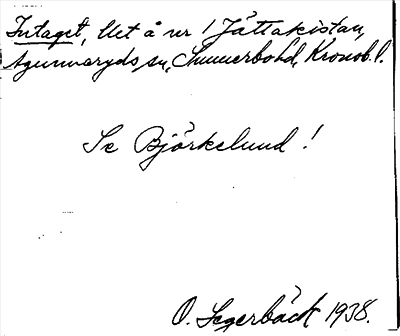 Intaget, Uet å nr 1 Jättakistan,
Agunnaryds sn, Sunnerbo hd, Kronob. l.
Se Björkelund!
O. Segerbäck 1938.